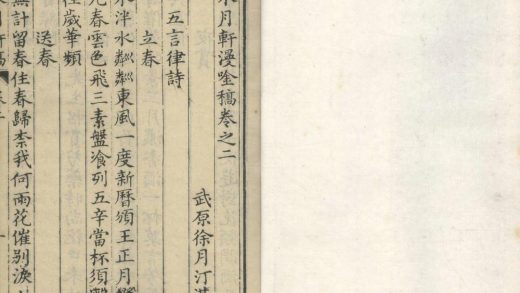 月軒漫唫稿卷之二
武原徐月汀
五言律詩
立春
泮水粼粼東風一度新曆頒王正月
春雲色飛三素盤飡列五辛當杯須
歲華頻
送春
無計留春住春歸柰我何雨花催別淚